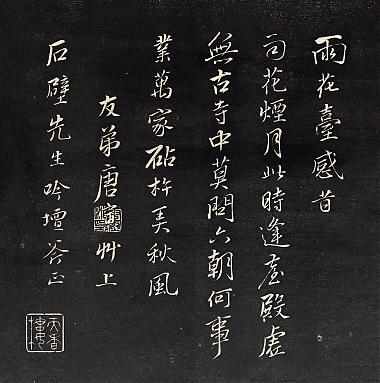 雨花臺感昔
司花煙月此時逢殿虛
無古寺中莫問六朝何事
業萬家砧杵美秋風
友弟唐艸上
石壁先生吟壇正
天香